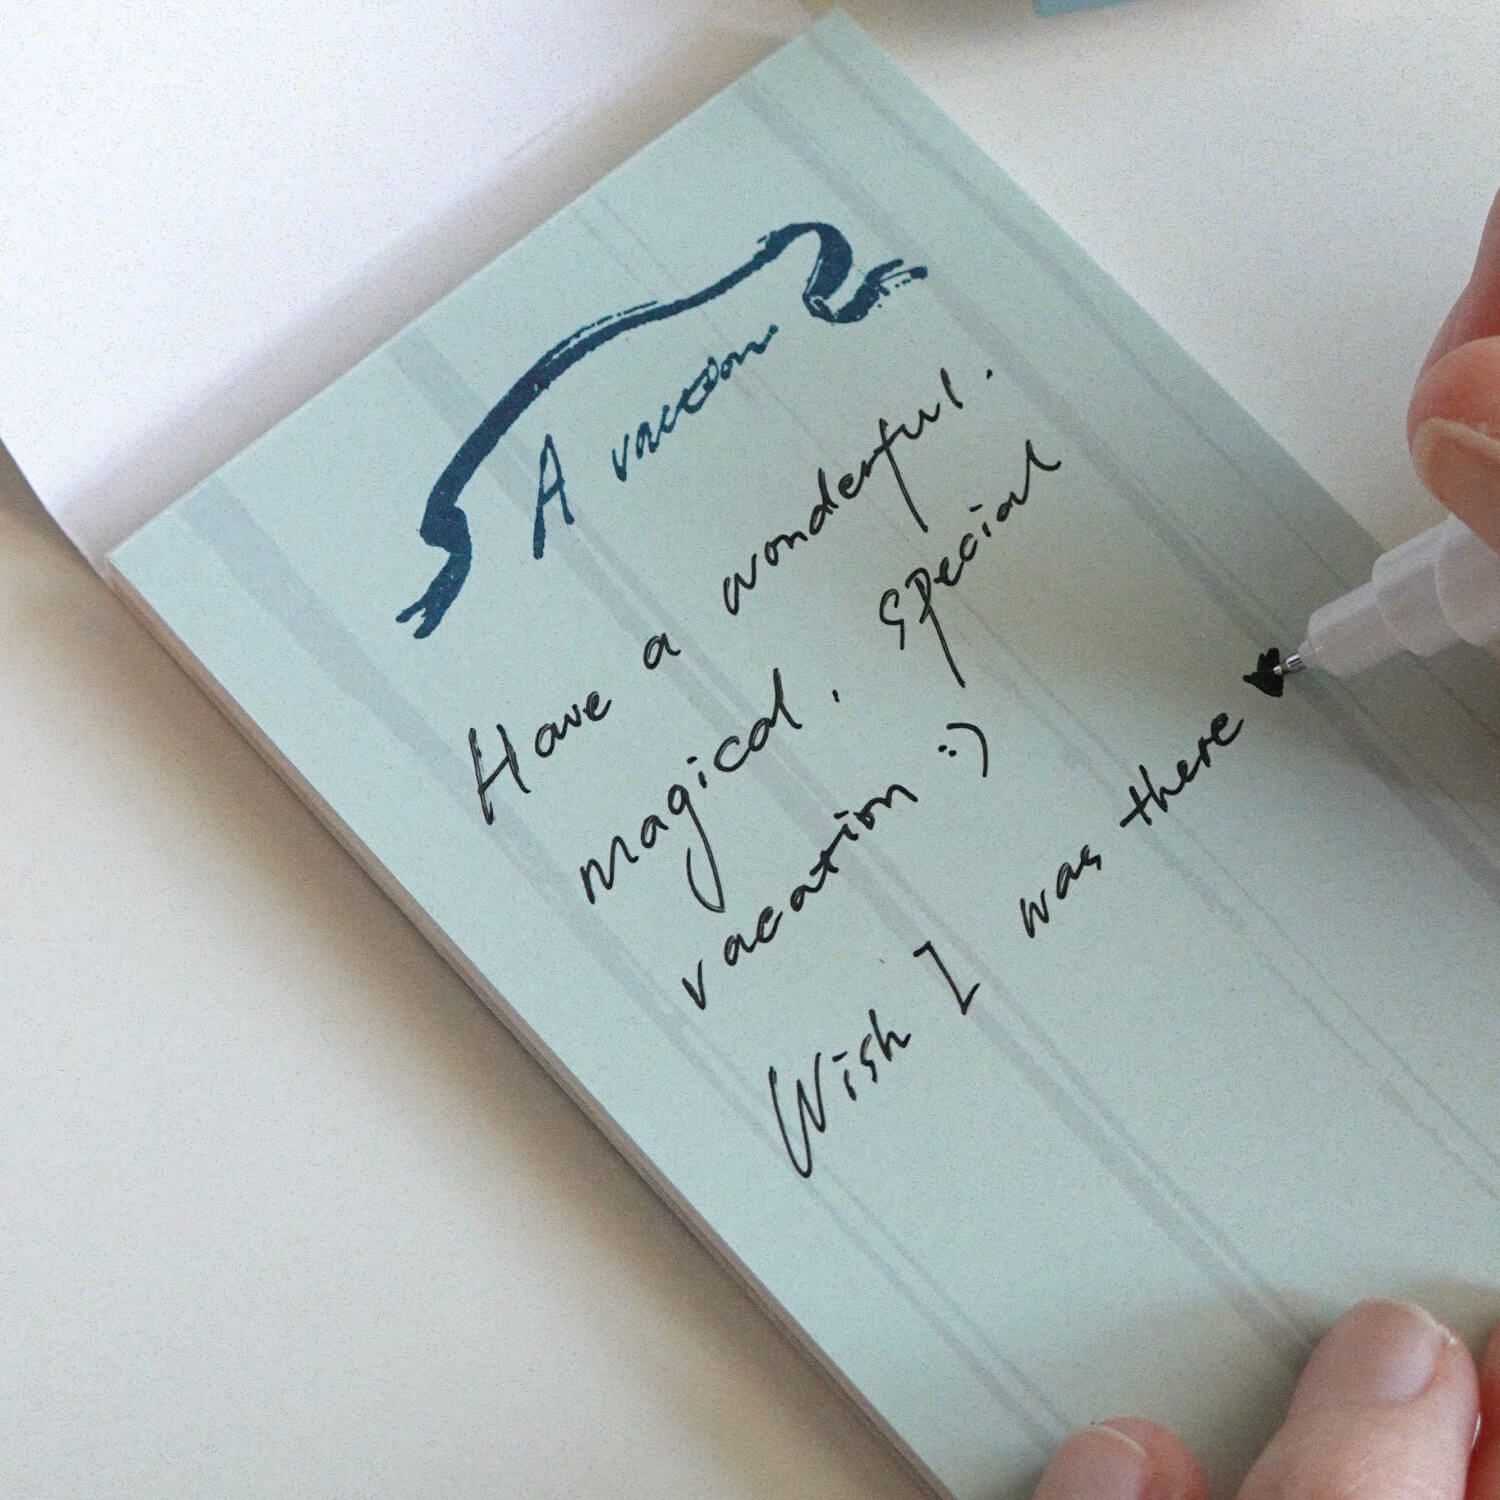 A vacation
Have a wonderful.
magical. special
vacation :)
Wish I was there ♥